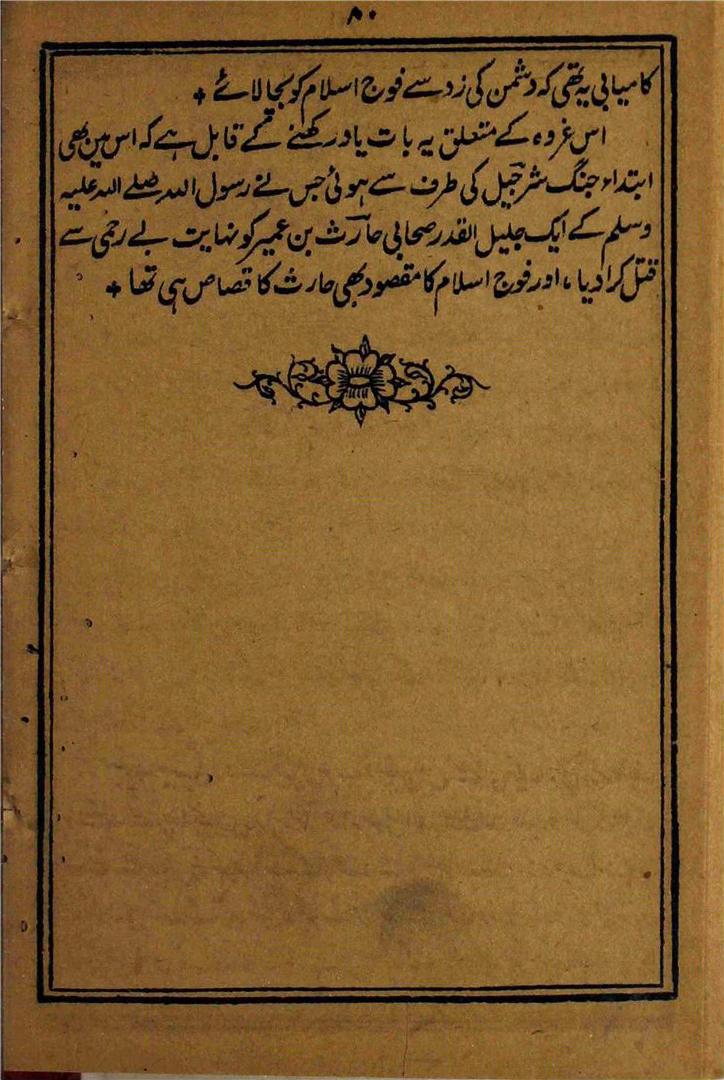 ۸۰
کامیابی یہ تھی کہ دشمن کی زد سے فوج اسلام کو بجا لائے +
اس غزوہ کے متعلق یہ بات یاد رکھنے کے قابل ہے کہ اس مین بھی
ابتداء جنگ شرجیل کی طرف سے ہوئی جس نے رسول اللہ صلے اللہ علیہ
وسلم کے ایک جلیل القدر صحابی حارث بن عمیر کو نہایت بے رحمی سے
قتل کرادیا، اور فوج اسلام کا مقصود بھی حارث کا قصاص ہی تھا +